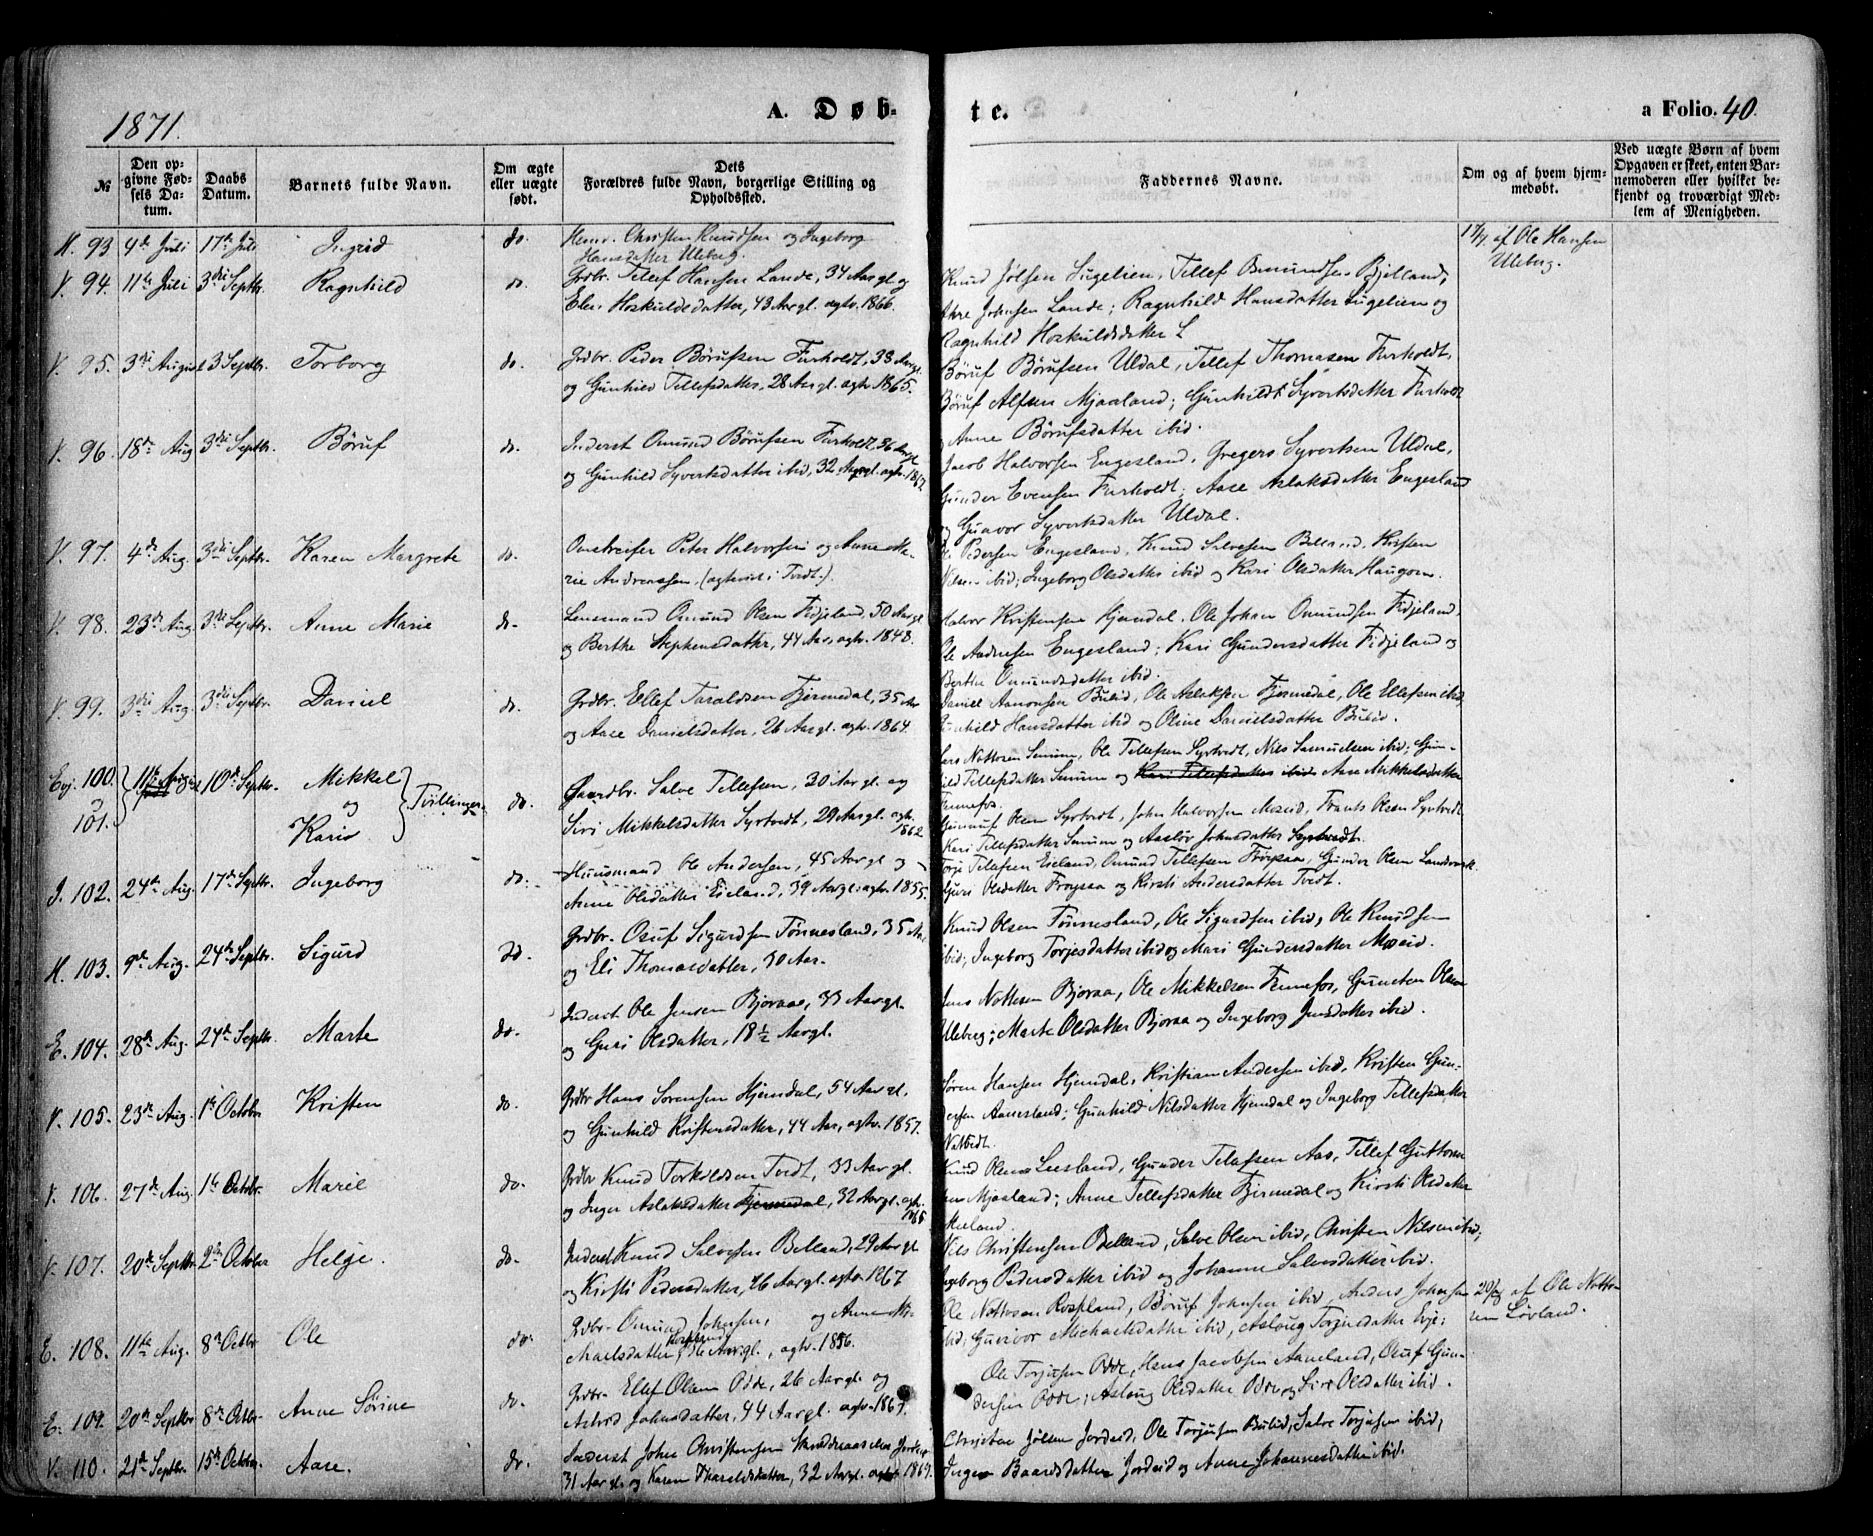 1871.
A. Døb-
te.
a Folio. 40.
№
Den op-
givne Fød-
sels Da-
tum.
Daabs
Datum.
Barnets fulde Navn.
Om ægte
eller uægte
født.
Dets
Forældres fulde Navn, borgerlige Stilling og
Opholdssted.
Faddernes Navne.
Om og af hvem hjem-
medøbt.
Ved uægte Børn af hvem
Opgaven er skeet, enten Bar-
nemoderen eller hvilket be-
kjendt og troværdigt Med-
lem af Menigheden.
H. 93 4de Juli 17de Juli Ingrid do. Christen Knudsen og Ingeborg
Hansdatter Uleberg.
af Ole Hansen
Uleberg.
V. 94. 11te Juli 3die Septbr. Ragnhild do. Grdbr. Tellef Hansen Lande, 34 Aar gl. og
Elen Hoskuldsdatter, 43 Aar gl. agtv. 1866.
Knud Jølsen Lugelien, Tellef Omundsen Bjelland,
Johnsen Lande; Ragnhild Hansdatter Lugelien og
Ragnhild Hoskuldsdatter L
V. 95. 3die August 3 Septbr. Torborg do. Grdbr. Peder Børufsen Furholdt, 38 Aar gl.
og Gunhild Tellefsdatter, 28 Aar gl. agtv. 1865.
Børuf Børufsen Uldal, Tellef Thomasen Furholdt,
Børuf Alfsen Mjaaland; Gunhild Syvertsdatter Furholdt
Anne Børufsdatter ibid.
V. 96. 18de Aug. 3die Septbr. Børuf do. Inderst Omund Børufsen Furholdt, 36 Aar gl.
og Gunhild Syvertsdatter ibid, 32 Aar gl. agtv. 1867.
Jacob Halvorsen Engesland, Gregers Syvertsen Uldal,
Gunder Evensen Furholdt; Aase Aslaksdatter Engesland
og Gunvor Syvertsdatter Uldal.
V. 97. 4de Aug. 3die Septbr. Karen Margrete do. Omstreifer Peter Halvorsen og Anne Ma-
rie Andreassen, (agteviet i Tvedt.).
Pedersen Engesland, Knud Salvesen Belland, Kristen
Nilsen ibid; Ingeborg Olsdatter ibid og Kari Olsdatter Haugom.
V. 98. 23de Aug. 3die Septbr. Anne Marie do. Lensmand Omund Olsen Fidjeland, 50 Aar gl.
og Berthe Stephensdatter, 44 Aar, agtv. 1848.
Halvor Kristensen Hjemdal, Ole Johan Omundsen Fidjeland,
Ole Andersen Engesland; Kari Gundersdatter Fidjeland og
Berthe Omundsdatter ibid.
V. 99. 3die Aug. 3die Septbr. Daniel do. Grdbr. Ellef Taraldsen Fjermedal, 35 Aar
og Aase Danielsdatter, 26 Aar gl. agtv. 1864.
Daniel Aanonsen Bulid, Ole Aslaksen Fjermedal, Ole Ellefsen ibid,
Gunhild Hansdatter ibid og Oline Danielsdatter Bulid.
Evj. 100. og 101. 11te August 10de Septbr. Mikkel
og
Kari
Tvillinger. do. Gaardbr. Salve Tellefsen, 30 Aar gl. og
Siri Mikkelsdatter Syrtvedt, 29 Aar gl. agtv. 1862.
Lars Nottosen Senum, Ole Tellefsen Syrtvedt, Nils Samuelsen ibid; Gun-
hild Tellefsdatter Senum og Kari Tellefsdatter ibid Aase Mikkelsdatter
Fennefos.
Gunnuf Olsen Syrtvedt, John Halvorsen Moseid, Frants Olsen Syrtvedt
Kari Tellefsdatter Senum og Aaslør Johnsdatter Syrtvedt.
J. 102. 24de Aug. 17de Septbr. Ingeborg do. Huusmand Ole Andersen, 45 Aar gl. og
Anne Olsdatter Eieland, 39 Aar gl. agtv. 1855.
Torje Tellefsen Eieland, Omund Tellefsen Frøysaa, Gunder Olsen Landeraak
Guri Olsdatter Frøysaa og Kirsti Andersdatter Tvedt.
H. 103. 9de Aug. 24de Septbr. Sigurd do. Grdbr. Osuf Sigurdsen Tønnesland, 35 Aar
og Eli Thomasdatter, 30 Aar.
Knud Olsen Tønnesland, Ole Sigurdsen ibid, Ole Knudsen
ibid; Ingeborg Torjesdatter ibid og Mari Gundersdatter Moseid.
E. 104. 28de Aug. 24de Septbr. Marte do. Inderst Ole Jensen Bjoraae, 33 Aar gl.
og Guri Olsdatter, 18 1/2 Aar gl.
Jens Nottosen Bjoraa, Ole Mikkelsen Fennefos, Gunsten Olsen
Uleberg; Marte Olsdatter Bjoraa og Ingeborg Jensdatter ibid.
V. 105. 23de Aug. 1ste October Kristen do. Grdbr Hans Sørensen Hjemdal, 54 Aar gl.
og Gunhild Kristensdatter, 44 Aar, agtv. 1857.
Søren Hansen Hjemdal, Kristian Andersen ibid, Kristen Gun-
dersen Aanesland; Gunhild Nilsdatter Hjemdal og Ingeborg Tellefsdatter
Natvedt.
V. 106. 27de Aug. 1ste Octobr. Marie do. Grdbr Knud Torkildsen Tvedt, 33 Aar gl.
og Inger Aslaksdatter Fjermedal, 32 Aar gl. agtv. 1865.
Knud Olsen Liesland, Gunder Telafsen Aas, Tellef Guttorm
sen Mjaaland; Anne Tellefsdatter Fjermedal og Kirsti Olsdatter
V. 107. 20de Septbr 2den October Helje. do. Inderst Knud Salvesen Belland, 29 Aar gl.
og Kirsti Pedersdatter, 26 Aar gl. agtv. 1867
Nils Christensen Belland, Salve Olsen ibid, Christen Nilsen ibid;
Ingeborg Pedersdatter ibid og Johanne Salvesdatter ibid.
E. 108. 11te Aug. 8de Octbr Ole do. Grdbr. Omund Johnsen, og Anne Mi-
chaelsdatter, 36 Aar gl., agtv. 1856.
Ole Nottosen Rosseland, Børuf Johnsen ibid, Anders Johnsen
ibid; Gunvor Michaelsdatter ibid, Aslaug Torjusdatter Evje;
af Ole Notto-
sen Løvland.
E. 109. 20de Septbr 8de Octbr. Anne Sørine do. Grdbr. Ellef Olsen Odde, 26 Aar gl. og
Astrid Johnsdatter, 44 Aar gl. agtv. 1867.
Ole Torjusen Odde, Hans Jacobsen Aaneland, Osuf Gun-
dersen Odde; Aslaug Olsdatter Odde og Siri Olsdatter ibid.
V. 110. 21de Septbr. 15de October. Aase. do. Inderst John Christensen Jordeid
31 Aar gl. og Karen Tharaldsdatter, 32 Aar gl. agtv 1869.
Christen Jølsen Jordeid, Ole Torjusen Bulid, Salve Torjusen ibid;
Inger Baardsdatter Jordeid og Anne Johannesdatter ibid.